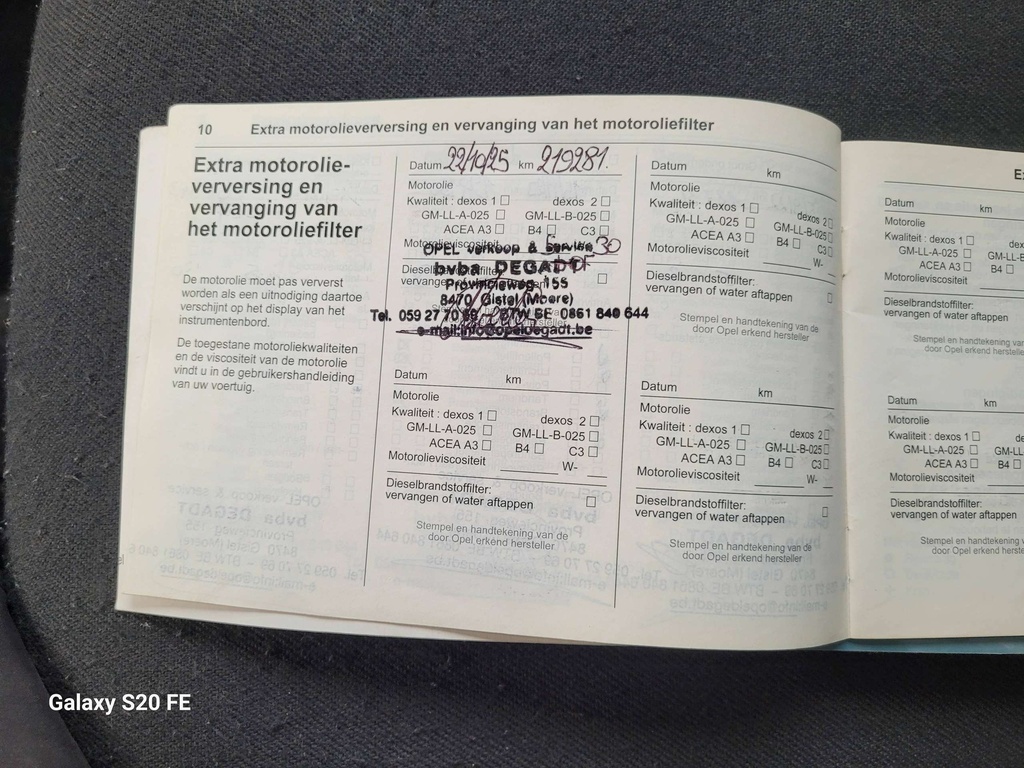 10 Extra motorolieverversing en vervanging van het motoroliefilter
Extra motorolie-
verversing en
vervanging van
het motoroliefilter
De motorolie moet pas ververst
worden als een uitnodiging daartoe
verschijnt op het display van het
instrumentenbord.
De toegestane motoroliekwaliteiten
en de viscositeit van de motorolie
vindt u in de gebruikershandleiding
van uw voertuig.
Datum 22/10/25 km 219281.
Motorolie
Kwaliteit : dexos 1 dexos 2
GM-LL-A-025 GM-LL-B-025
ACEA A3 B4 C3
Motorolieviscositeit 30
OPEL verkoop & service
Dieselbrandstoffilter:
bvba DEGADT
vervangen
Provincieweg 155
8470 Gistel (Moere)
Tel. 059 27 70 69 - BTW BE 0861 840 644
e-mail:info@opeldegadt.be
Datum km
Motorolie
Kwaliteit : dexos 1 dexos 2
GM-LL-A-025 GM-LL-B-025
ACEA A3 B4 C3
Motorolieviscositeit W-
Dieselbrandstoffilter:
vervangen of water aftappen
Stempel en handtekening van de
door Opel erkend hersteller
Datum km
Motorolie
Kwaliteit : dexos 1 dexos 2
GM-LL-A-025 GM-LL-B-025
ACEA A3 B4 C3
Motorolieviscositeit W-
Dieselbrandstoffilter:
vervangen of water aftappen
Stempel en handtekening van de
door Opel erkend hersteller
Datum km
Motorolie
Kwaliteit : dexos 1 dexos 2
GM-LL-A-025 GM-LL-B-025
ACEA A3 B4 C3
Motorolieviscositeit W-
Dieselbrandstoffilter:
vervangen of water aftappen
Stempel en handtekening van de
door Opel erkend hersteller
Datum km
Motorolie
Kwaliteit : dexos 1
GM-LL-A-025
ACEA A3 B4
Motorolieviscositeit
Dieselbrandstoffilter:
vervangen of water aftappen
Stempel en handtekening
door Opel erkend hersteller
Datum km
Motorolie
Kwaliteit : dexos 1
GM-LL-A-025
ACEA A3 B4
Motorolieviscositeit
Dieselbrandstoffilter:
vervangen of water aftappen
Stempel en handtekening van
door Opel erkend hersteller
Galaxy S20 FE